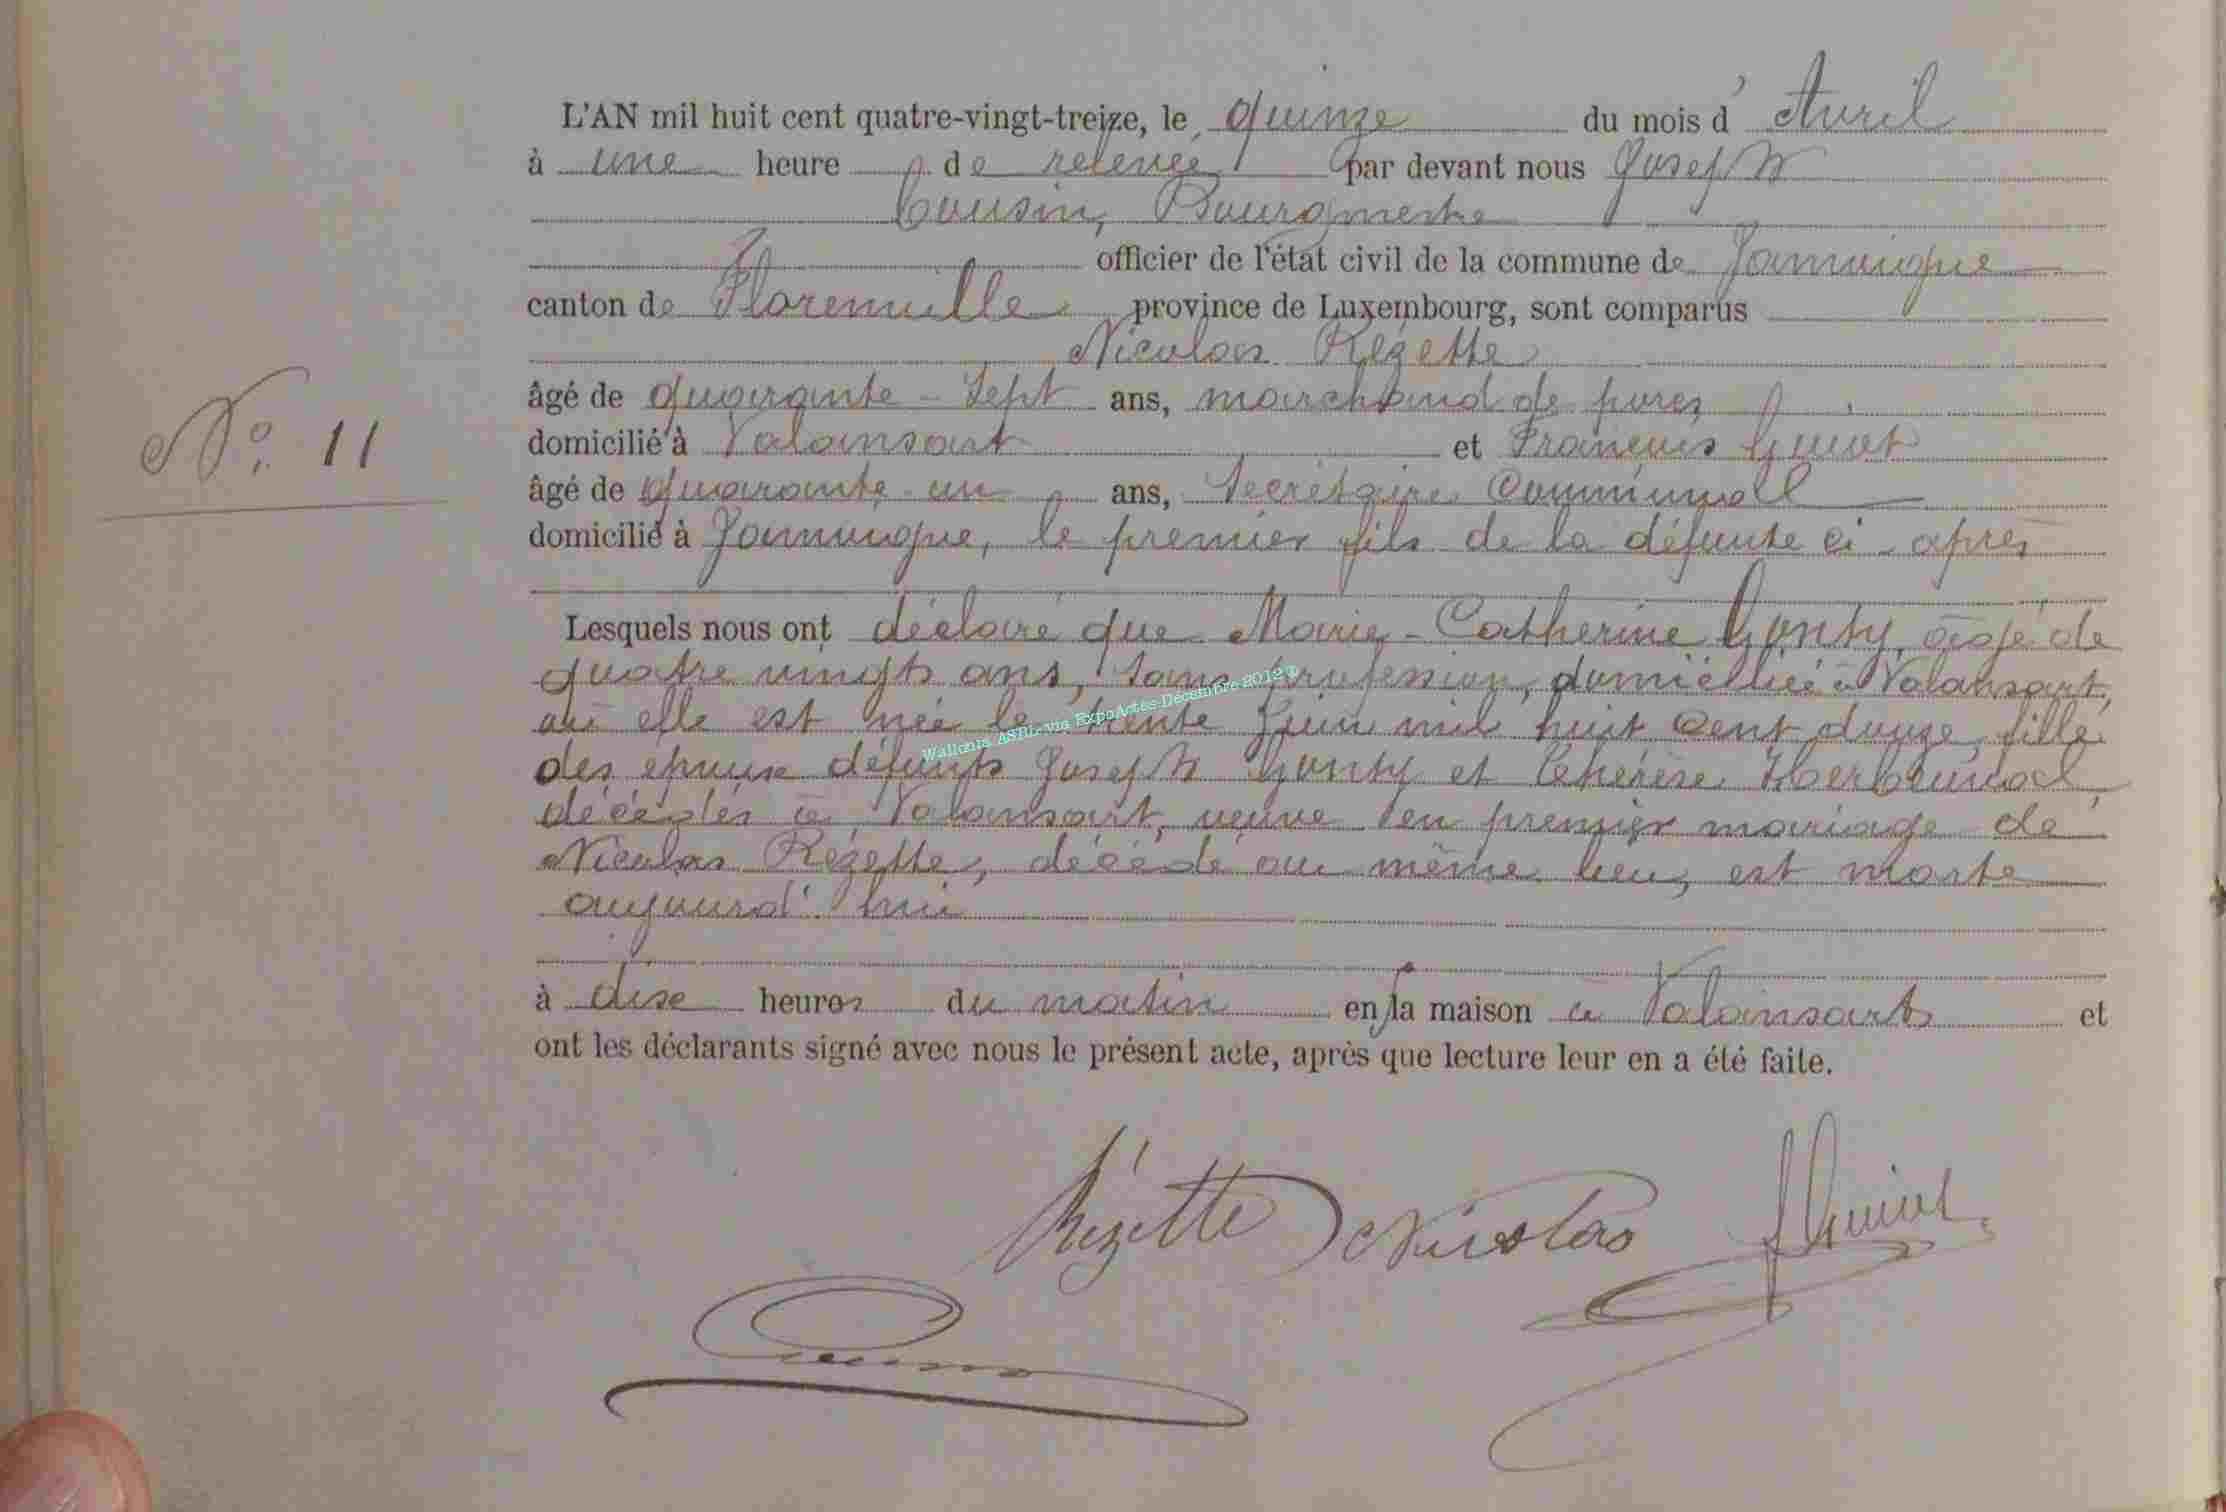 L'AN mil huit cent quatre-vingt-treize, le quinze du mois d'Avril
à une heure de relevée par devant nous Joseph
Cousin, Bourgmestre
officier de l'état civil de la commune de Jamoigne
canton de Florenville province de Luxembourg, sont comparus
Nicolas Rézette
âgé de quarante-sept ans, marchand de porcs
N° 11
domicilié à Valansart et François Guiot
âgé de quarante-un ans, Secrétaire Communal
domicilié à Jamoigne, le premier fils de la défunte ci-après
Lesquels nous ont déclaré que Marie-Catherine Gonty, âgé de
quatre vingts ans, sans profession, domiciliée à Valansart,
où elle est née le trente Juin mil huit cent douze, fille
des époux défunts Joseph Gonty et Thérèse
décédés à Valansart, veuve en premier mariage de
Nicolas Rézette, décédé au même lieu, est morte
aujourd'hui
Wallonia ASBL via ExpoActes Décembre 2012 ©
à dix heures du matin en la maison à Valansart et
ont les déclarants signé avec nous le présent acte, après que lecture leur en a été faite.
Rézette Nicolas F Guiot